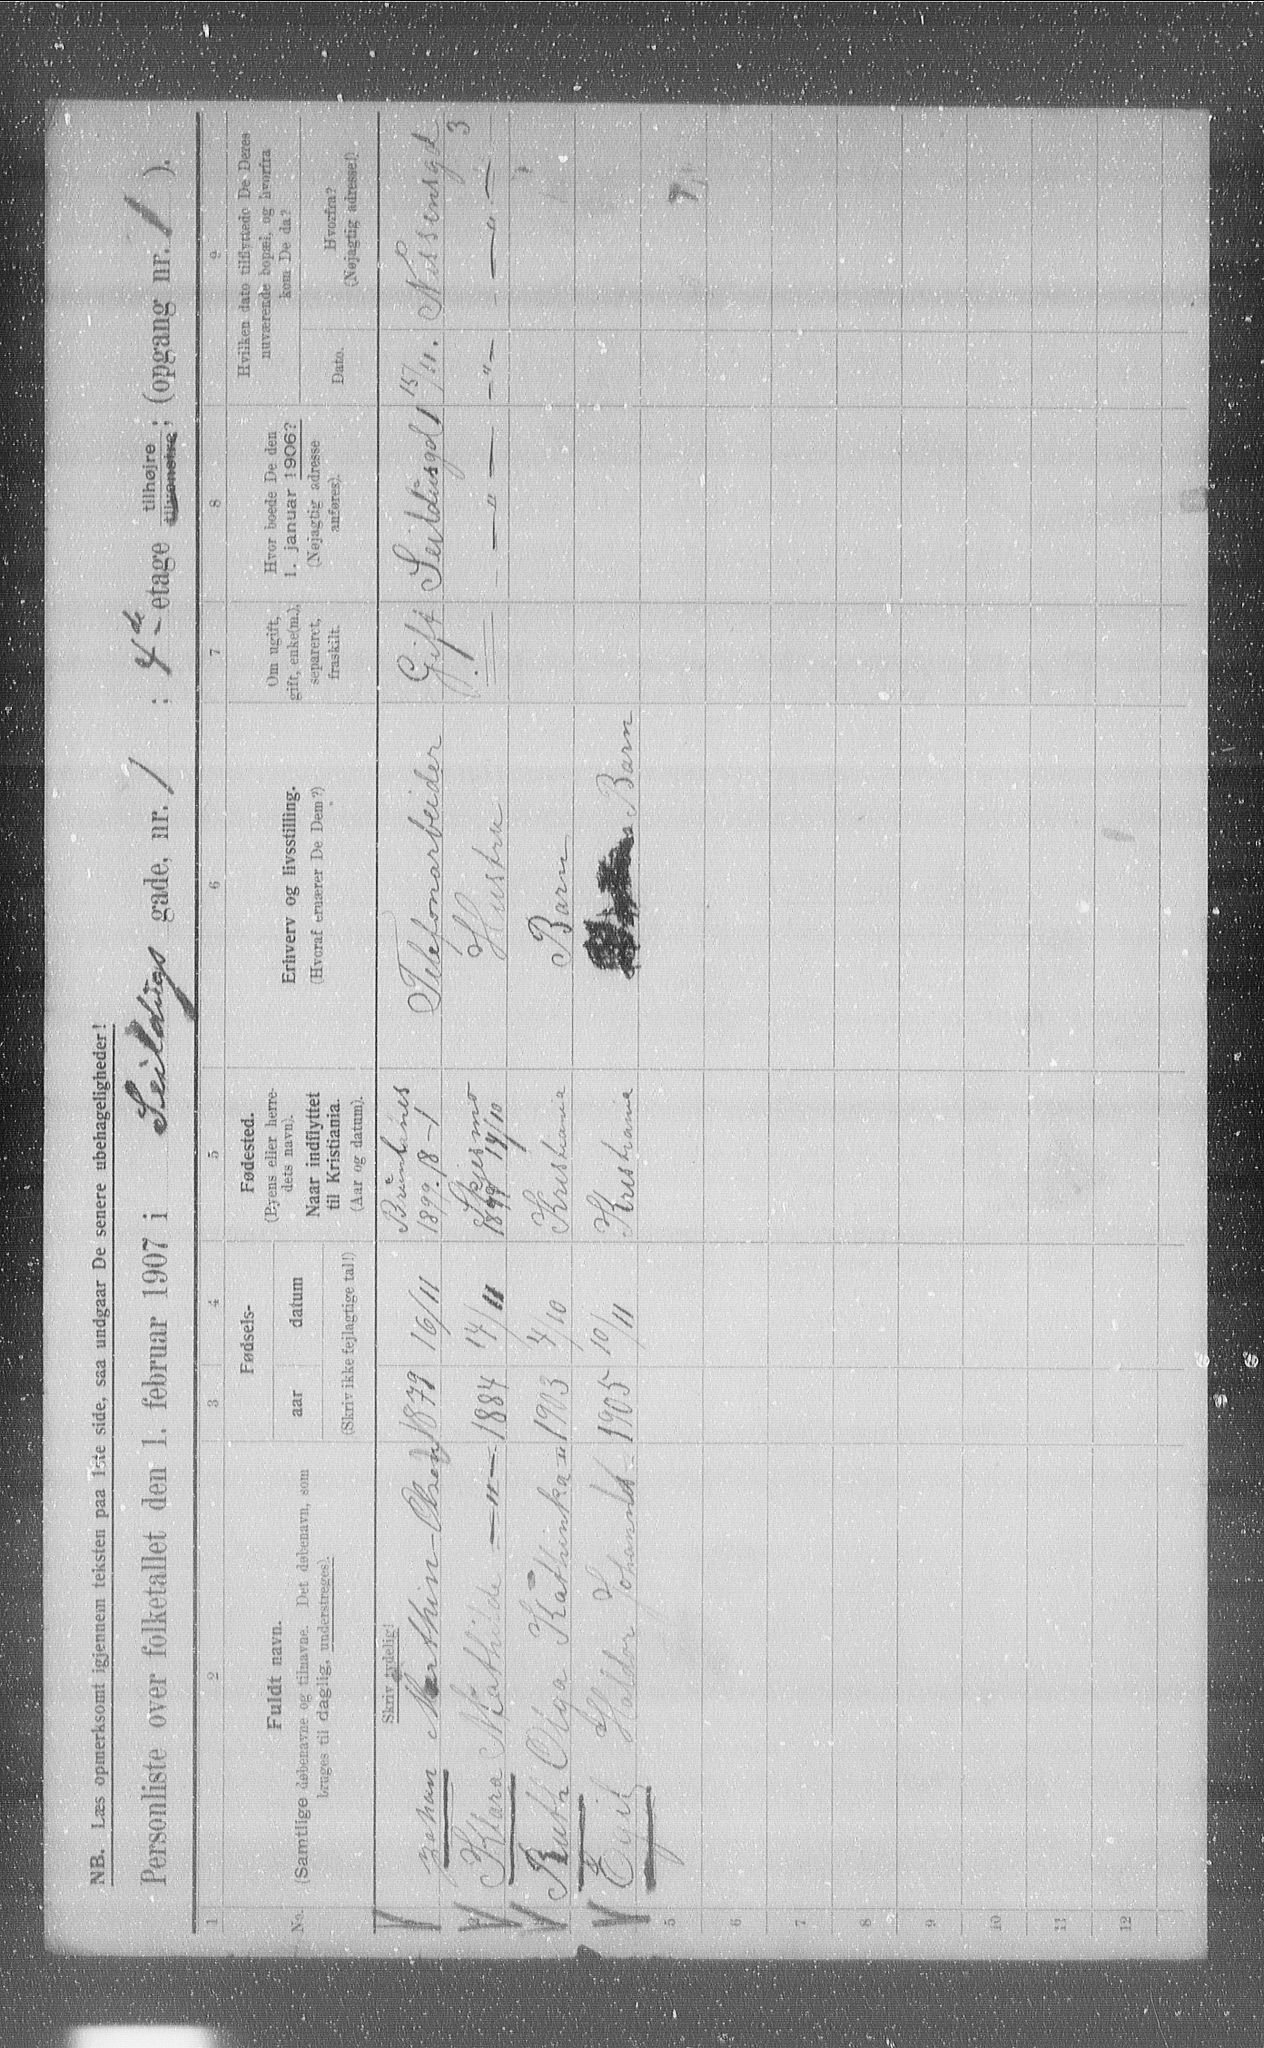 NB. Læs opmerksomt igjennem teksten paa 1ste side, saa undgaar De senere ubehageligheder!
Personliste over folketallet den 1. februar 1907 i Seildugs gade, nr. 1 ; 4de - etage tilhøjre tilvenstre; (opgang nr. 1 ).
1 2 3 4 5 6 7 8 9
No.
Fuldt navn.
(Samtlige døbenavne og tilnavne. Det døbenavn, som
bruges til daglig, understreges).
Fødsels-
aar datum
(Skriv ikke fejlagtige tal!)
Fødested.
(Byens eller herre-
dets navn).
Naar indflyttet
til Kristiania.
(Aar og datum).
Erhverv og livsstilling.
(Hvoraf ernærer De Dem?)
Om ugift,
gift, enke(m.),
separeret,
fraskilt.
Hvor boede De den
1. januar 1906?
(Nøjagtig adresse
anføres).
Hvilken dato tilflyttede De Deres
nuværende bopæl, og hvorfra
kom De da?
Dato.
Hvorfra?
(Nøjagtig adresse!)
Skriv tydelig!
Johan Marthin - Olsen 1879 16/11 1899. 18-1 Telefonarbeider Gift Seildugsgd 1 15/11. 3
Klara Mathilde —"— 1884 14/11 1899 14/10 Hustru —"— —"— —"—
Ruth Olga Kathinka —"— 1903 4/10 Kristiania Barn
Egil Haldor Johannes - 1905 10/11 Kristiania Barn
5
6
7
8
9
10
11
12